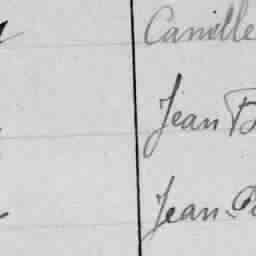 Camille
Jean B
Jean-